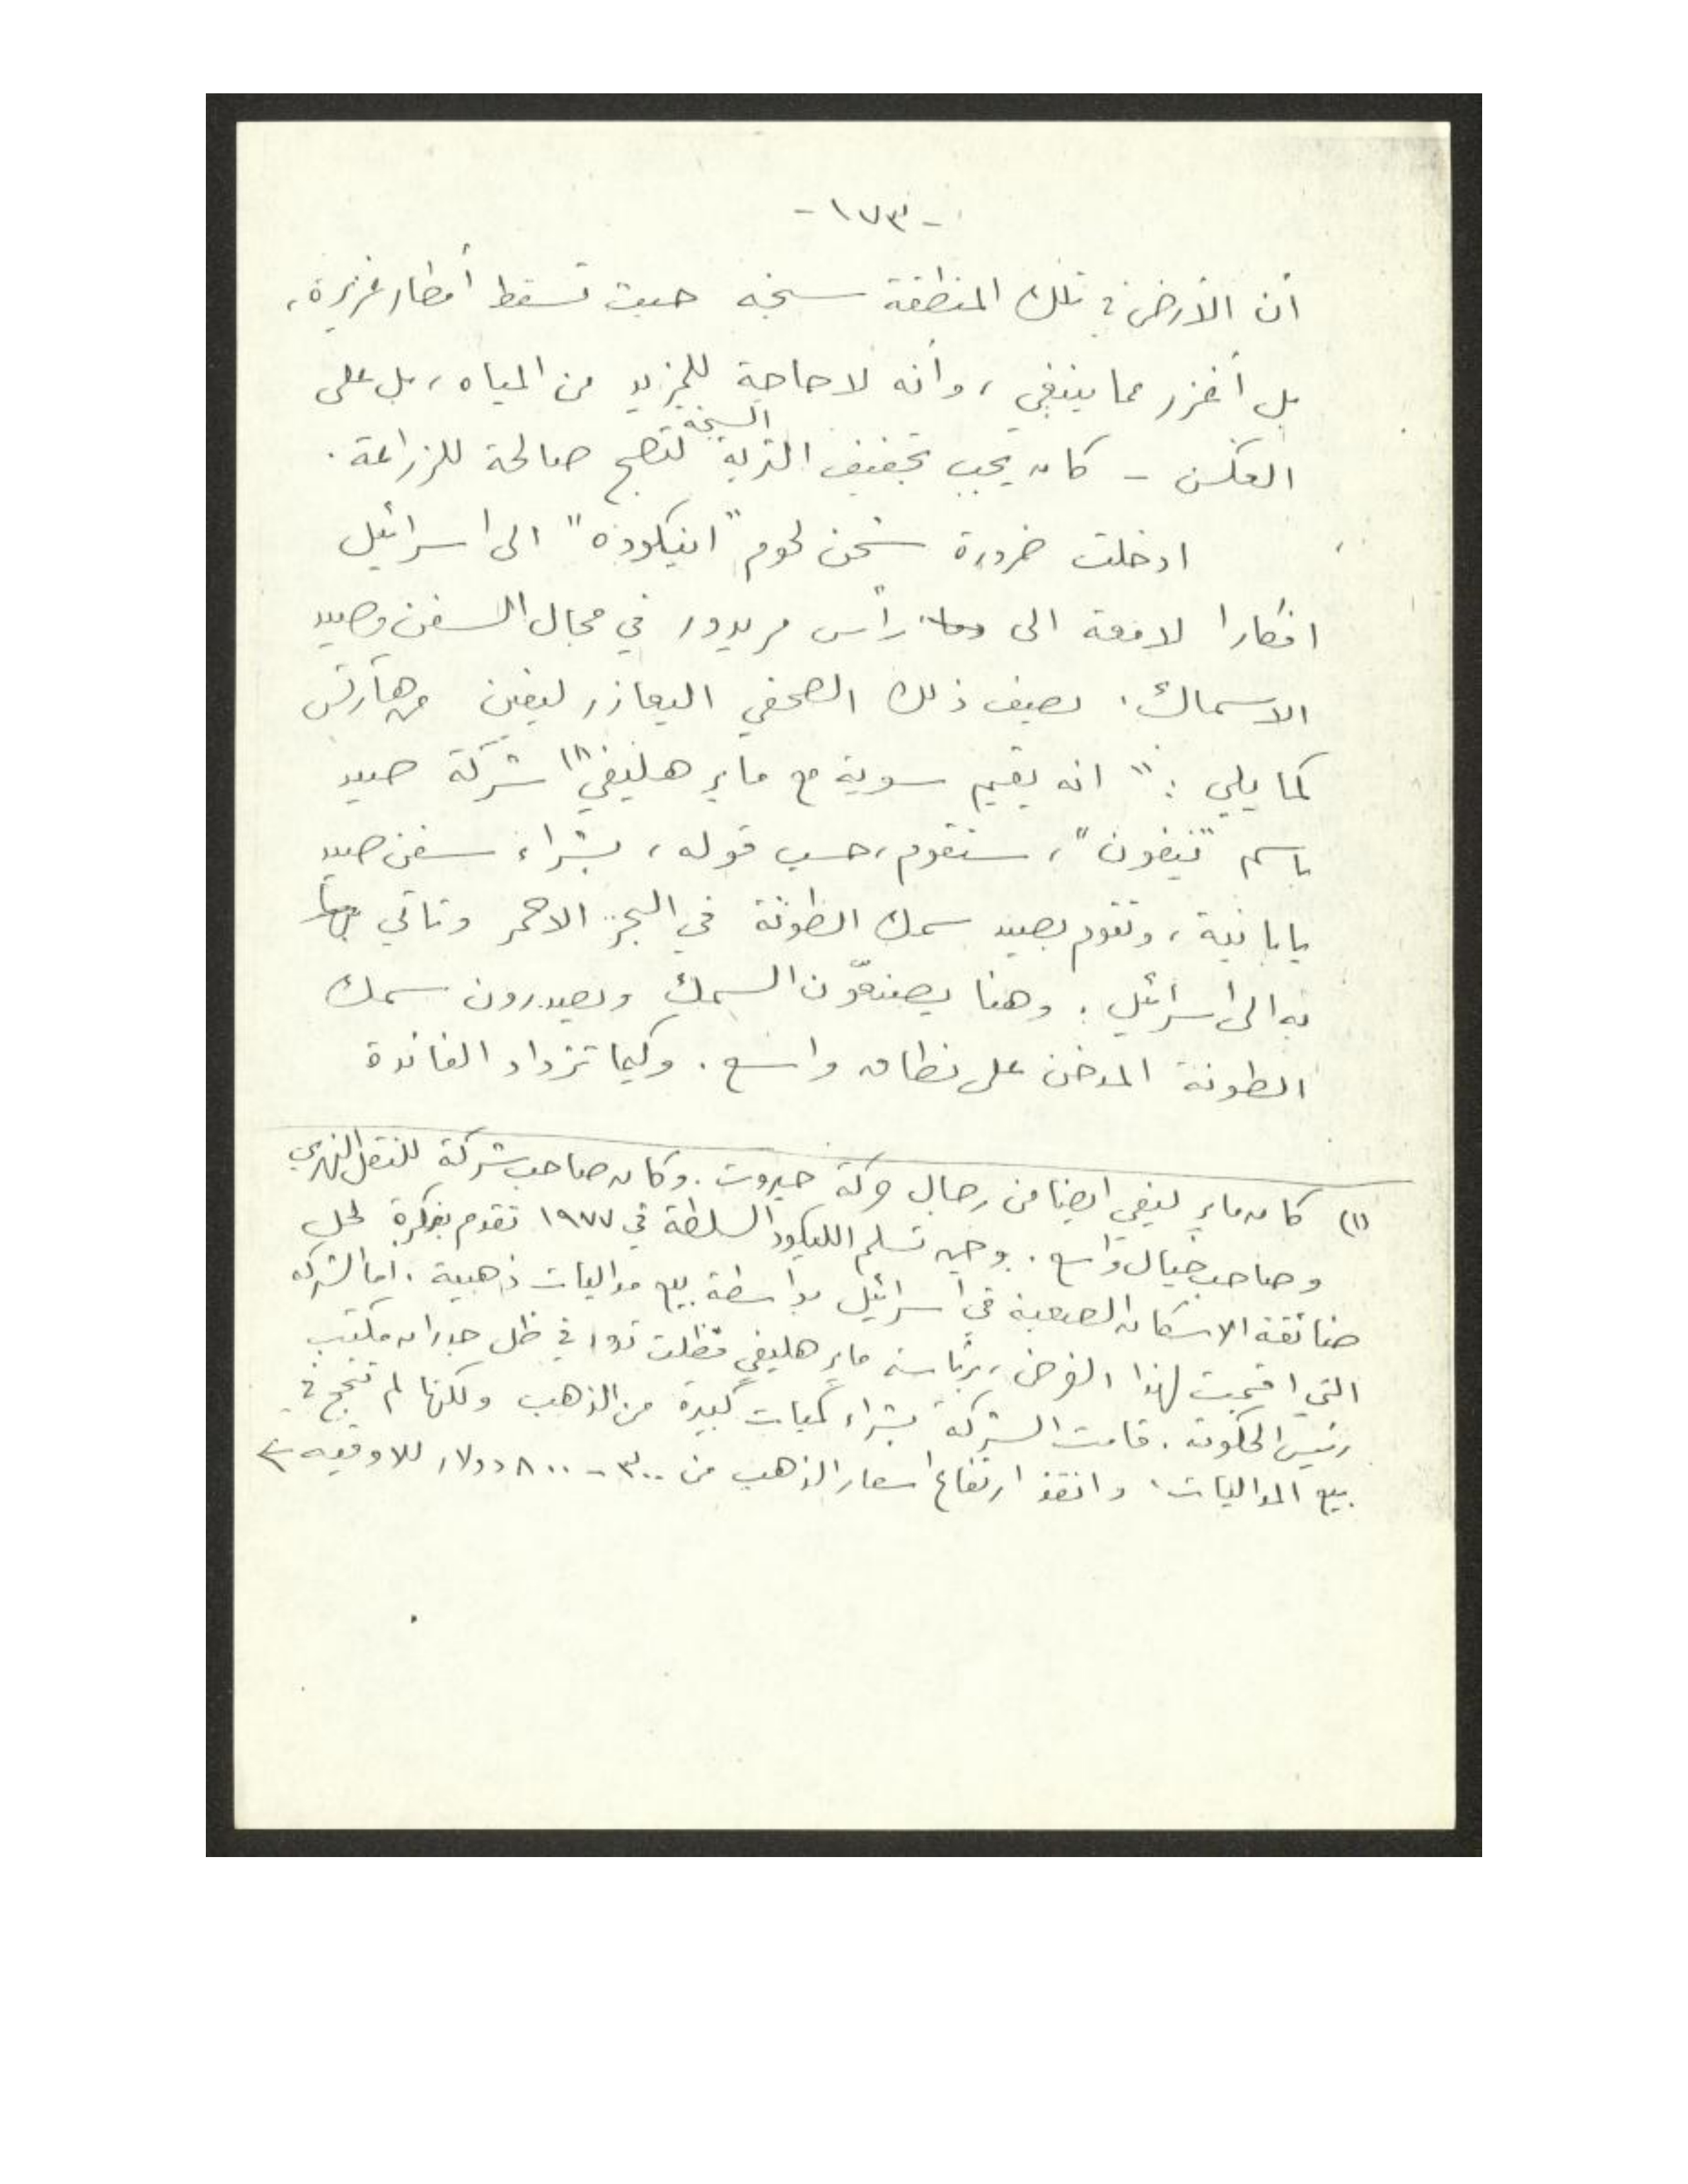 -١٧٣-
أن الأرض في تلك المنطقة سبخه حيث تسقط أمطار غزيرة،
بل أغزر مما ينبغي، وأنه لا حاجة للمزيد من المياه، بل على
السبخة
العكس - كان يجب تجفيف التربة لتصبح صالحة للزراعة.
ادخلت ضرورة شحن لحوم "انيكوده" الى اسرائيل
افكارا لامعة الى رأس مريدور في مجال السفن وصيد
الاسماك. يصف ذلك الصحفي اليعازر ليفين من هآرتس
كما يلي: "انه يقيم سوية مع ماير هليفي(١) شركة صيد
باسم "تيفون"، ستقوم، حسب قوله، بشراء سفن صيد
يابانية، وتقوم بصيد سمك الطونة في البحر الاحمر وتأتي
به الى اسرائيل. وهنا يصنعون السمك ويصدرون سمك
الطونة المدخن على نطاق واسع. وكيما تزداد الفائدة
(١) كان ماير ليفي ايضا من رجال حركة حيروت. وكان صاحب شركة للنقل النهري
وصاحب خيال واسع. وحين تسلم الليكود السلطة في ١٩٧٧ تقدم بفكرة لحل
ضائقة الاسكان الصعبة في اسرائيل بواسطة بيع مداليات ذهبية. اما الشركه
التي اقيمت لهذا الغرض، برئاسة ماير هليفي فظلت تدور في ظل جدران مكتب
رئيس الحكومة. قامت الشركة بشراء كميات كبيرة من الذهب ولكنها لم تنجح في
بيع المداليات، وانقذ ارتفاع اسعار الذهب من ٣٠٠ - ٨٠٠ دولار للاوقيه